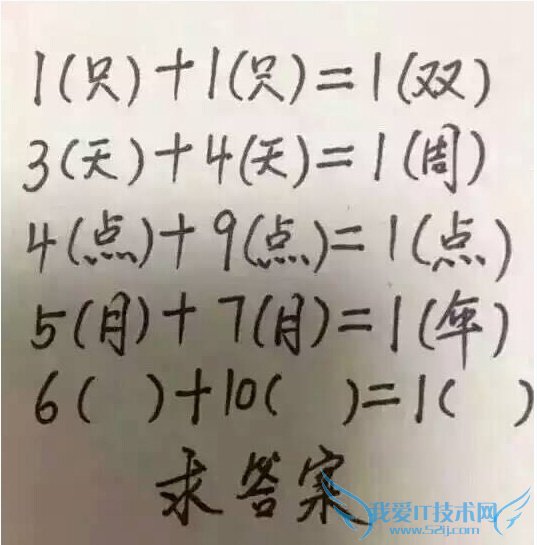 1(只)+1(只)=1(双)
3(天)+4(天)=1(周)
4(点)+9(点)=1(点)
5(月)+7(月)=1(年)
6( )+10( )=1( )
求答案
我爱IT技术网
www.52ij.com